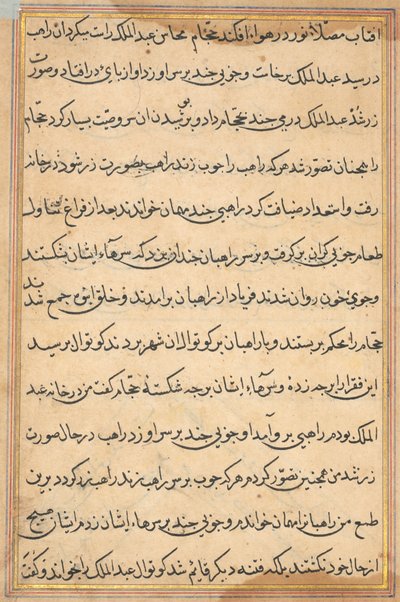 افتاب مصلّاء نور در هواء افکند حجّام محاسن عبدالملک راست میکرد ان راهب
در رسید عبدالملک برخاست و چوبی چند بر سر او زد او از پای در افتاد و صورت
زر شد عبدالملک درمی چند بحجّام داد و بر پوشیدن ان سر وصیّت بسیار کرد حجّام
را همچنان تصوّر شد هر که راهب را چوب زند راهب بصورت زر شود در خانه
رفت و استعداد ضیافت کرد راهبی چند مهمان خواند بعد از فراغ تناول
طعام چوبی کران بر کرفت و بر سر راهبان چندان بزد که سرهاء ایشان بشکستند
و جوی خون روان شدند فریاد از راهبان برامدند و خلق انبوه جمع شدند
حجّام را محکم بر بستند و با راهبان بر کوتوالان شهر بردند کوتوال پرسید
این فقرا را بر چه زده و سرهاء ایشان بر چه شکستهٔ حجّام کفت من در خانه عبد
الملک بودم راهبی بر وی آمد او چوبی چند بر سر او زد راهب در حال صورت
زر شد من همچنین تصوّر کردم هر که چوب بر سر راهب زند راهب زر کردد برین
طمع من راهبانرا مهمان خواندم و چوبی چند بر سرهاء ایشان زدم ایشان هیچ
از حال خود نکشتند بلکه فتنه دیکر قائم شد کوتوال عبدالملک را خواند و کفت